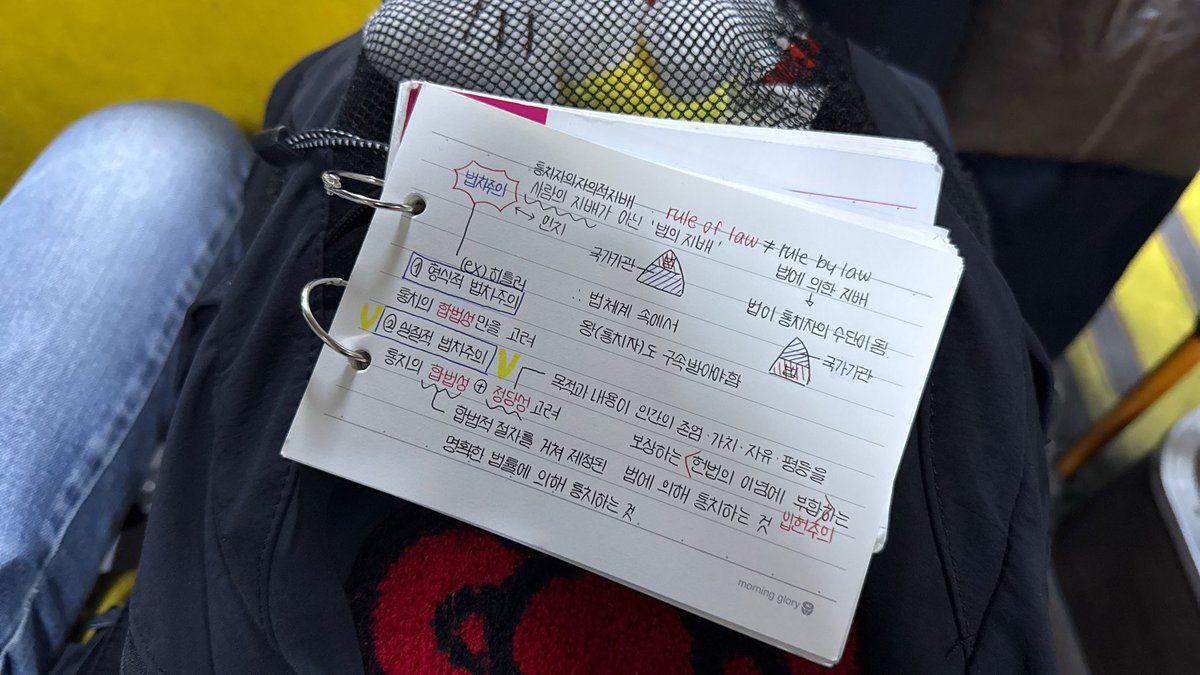 통치자의자의적지배
법치주의 사람의 지배가 아닌 '법의 지배' rule of law ≠ rule by law
↔ 인치
국가기관 법
법에 의한 지배
↓
∴ 법체계 속에서 법이 통치자의 수단이됨
왕(통치자)도 구속받아야함
법 국가기관
(ex) 히틀러
① 형식적 법치주의
통치의 합법성만을 고려
V ② 실질적 법치주의 V
통치의 합법성 ⊕ 정당성 고려
합법적 절차를 거쳐 제정된
명확한 법률에 의해 통치하는 것
목적과 내용이 인간의 존엄·가치·자유·평등을
보장하는 <헌법의 이념에 부합>하는
법에 의해 통치하는 것 입헌주의
morning glory